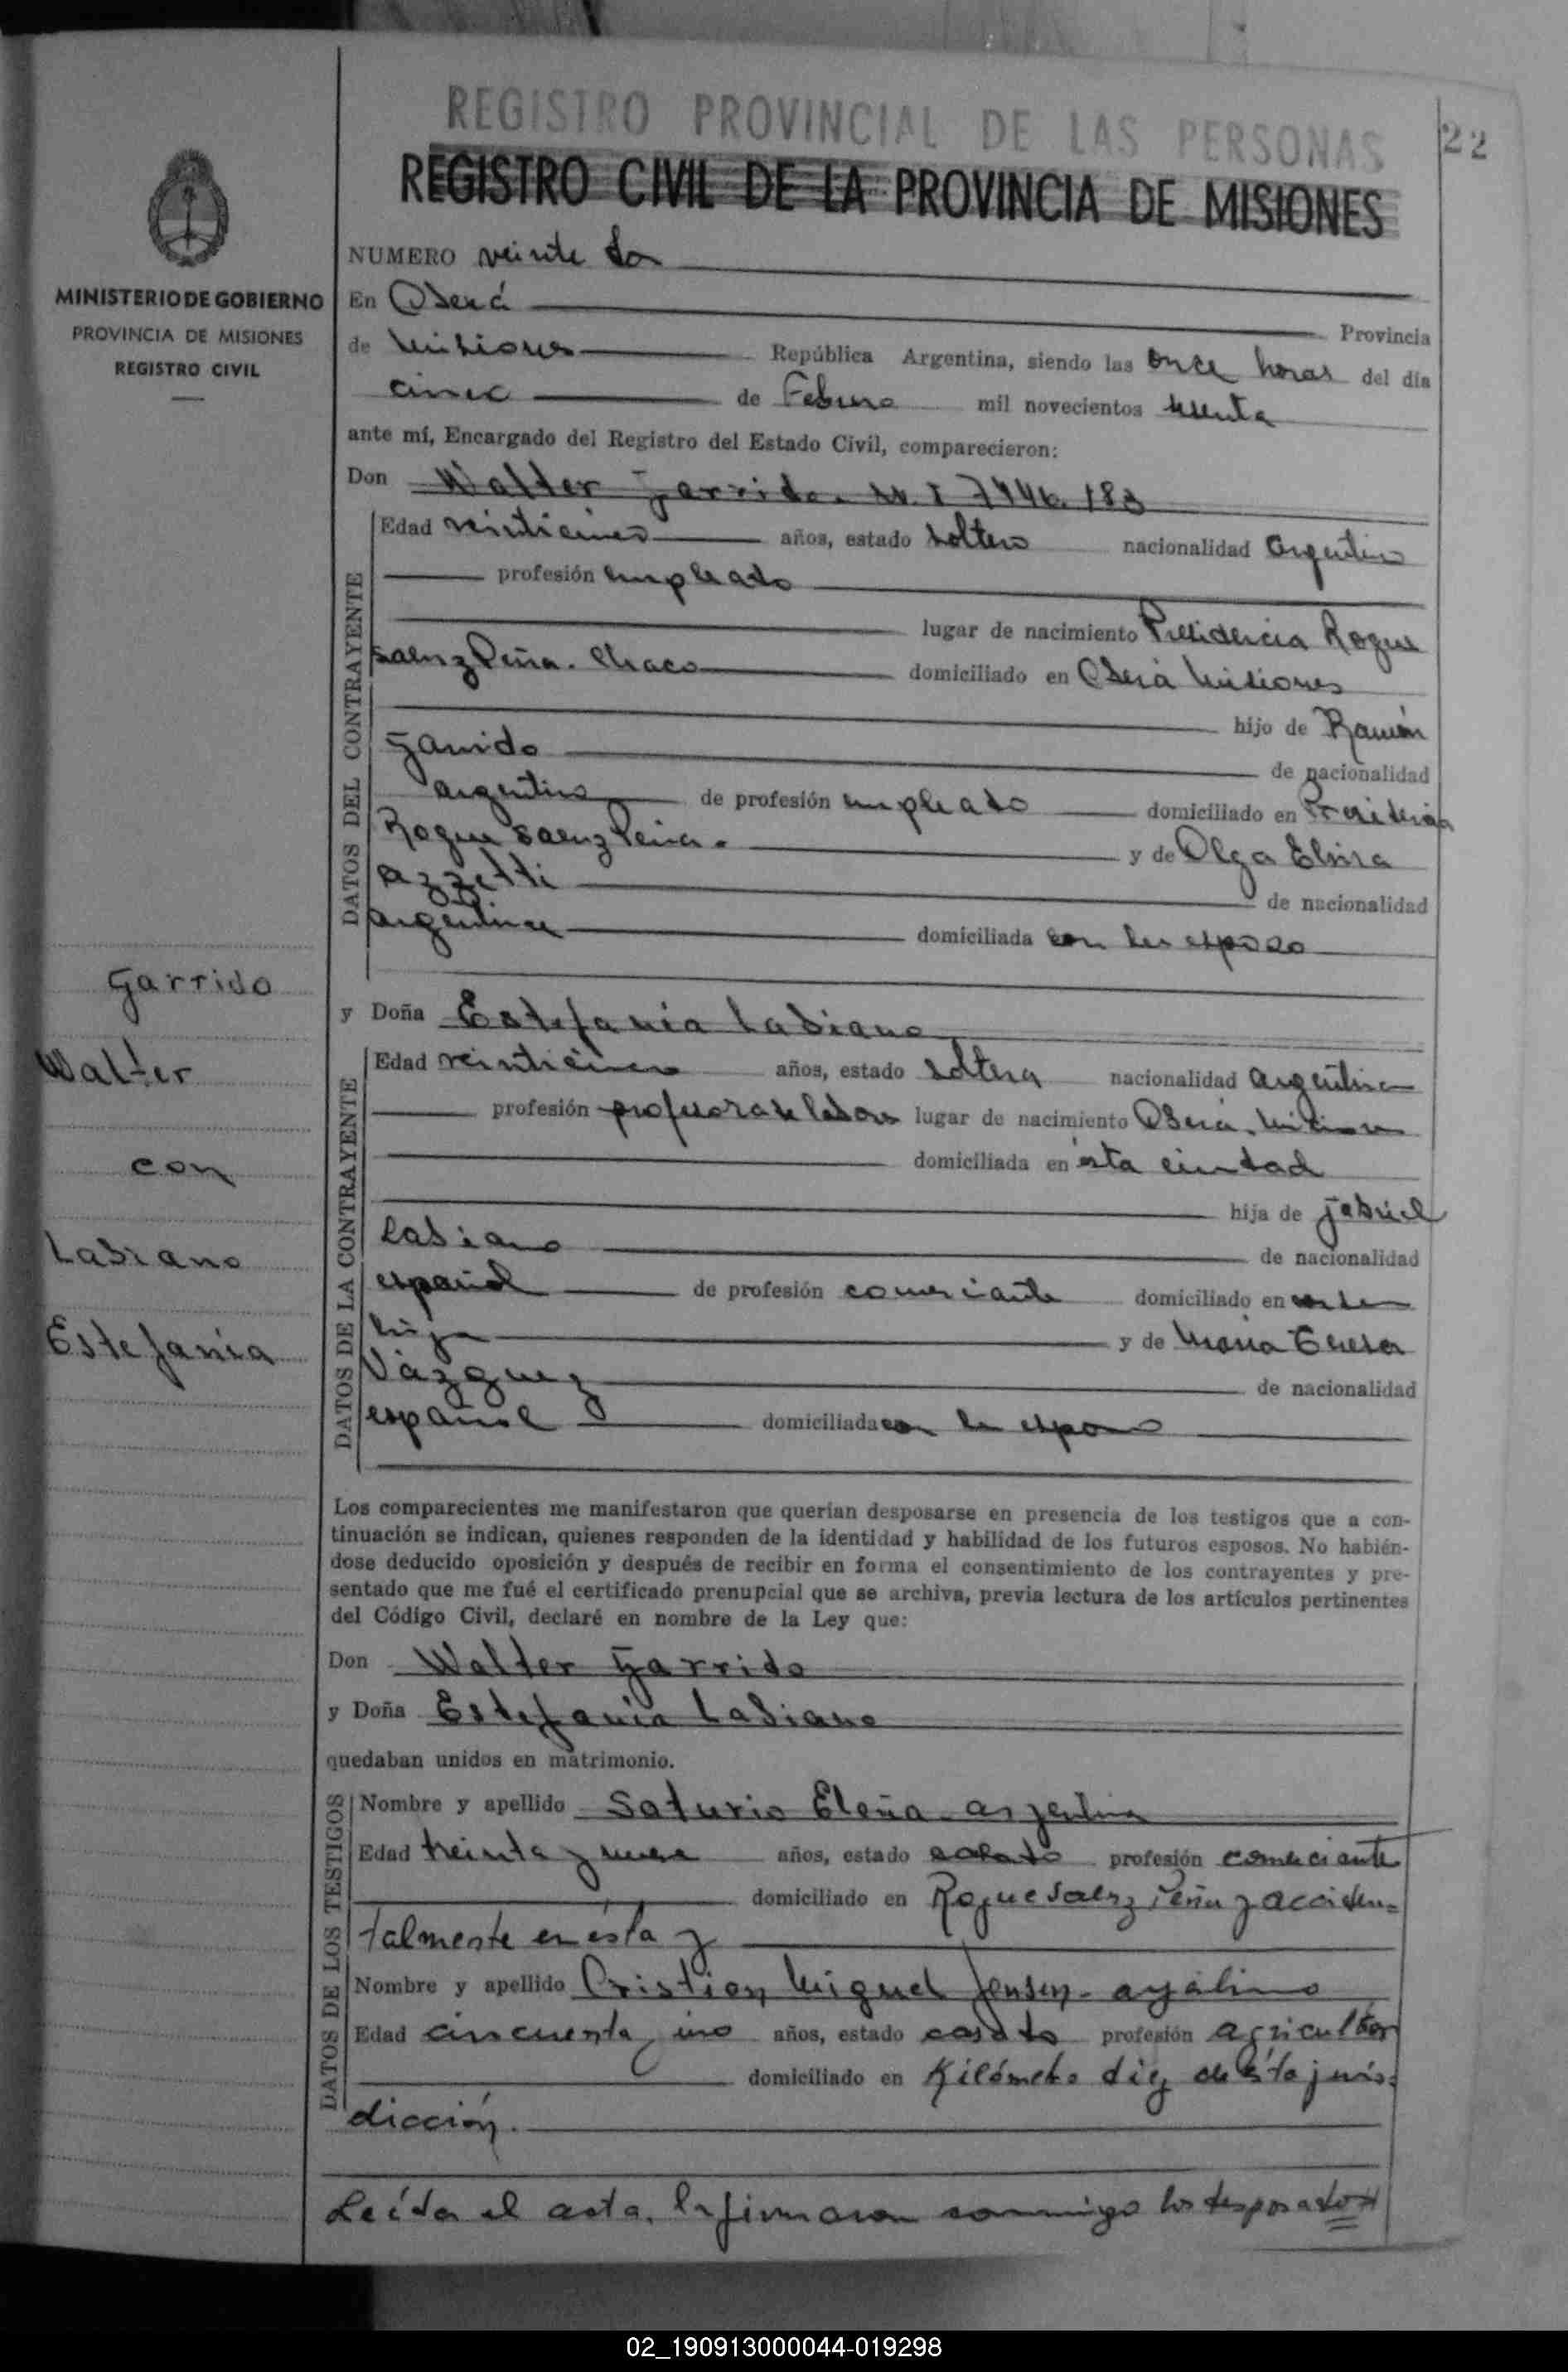 REGISTRO PROVINCIAL DE LAS PERSONAS
22
REGISTRO CIVIL DE LA PROVINCIA DE MISIONES
MINISTERIO DE GOBIERNO
PROVINCIA DE MISIONES
REGISTRO CIVIL
Garrido
Walter
con
Labiano
Estefanía
NUMERO veinte dos
En Oberá Provincia
de Misiones República Argentina, siendo las once horas del día
cinco de Febrero mil novecientos
ante mí, Encargado del Registro del Estado Civil, comparecieron:
Don Walter Garrido. M. I 7446.183
DATOS DEL CONTRAYENTE
Edad veinticinco años, estado soltero nacionalidad argentino
profesión empleado
lugar de nacimiento Presidencia Roque
Saenz Peña. Chaco domiciliado en Oberá Misiones
hijo de Ramón
Garrido de nacionalidad
argentino de profesión empleado domiciliado en Presidencia
Roque Saenz Peña. y de Olga Elvira
Azzetti de nacionalidad
argentina domiciliada con su esposo
y Doña Estefanía Labiano
DATOS DE LA CONTRAYENTE
Edad veinticinco años, estado soltera nacionalidad argentina
profesión profesora de labores lugar de nacimiento Oberá. Misiones
domiciliada en ésta ciudad
hija de Gabriel
Labiano de nacionalidad
español de profesión comerciante domiciliado en con su
hija y de María Teresa
Vázquez de nacionalidad
español domiciliada con su esposo
Los comparecientes me manifestaron que querían desposarse en presencia de los testigos que a con-
tinuación se indican, quienes responden de la identidad y habilidad de los futuros esposos. No habién-
dose deducido oposición y después de recibir en forma el consentimiento de los contrayentes y pre-
sentado que me fué el certificado prenupcial que se archiva, previa lectura de los artículos pertinentes
del Código Civil, declaré en nombre de la Ley que:
Don Walter Garrido
y Doña Estefanía Labiano
quedaban unidos en matrimonio.
DATOS DE LOS TESTIGOS
Nombre y apellido Saturio Eleña - argentina
Edad treinta y nueve años, estado casado profesión comerciante
domiciliado en Roque Saenz Peña y acciden-
talmente en ésta y
Nombre y apellido Cristian Miguel Jensen -
Edad cincuenta y uno años, estado casado profesión agricultor
domiciliado en Kilómetro diez de ésta juris-
dicción.
Leída el acta, la firmaron conmigo los desposados
02_190913000044-019298